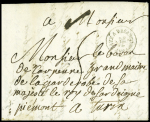 a Monsieur
Monsieur le baron
de grand maitre
de la garderobe de sa
majesté le roy de sardeigne
piémont a Turin